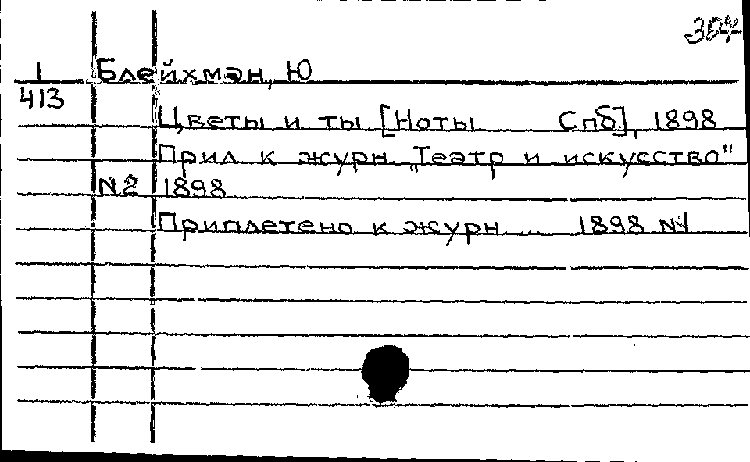 307
1 Блейхман, Ю
413
Цветы и ты [Ноты Спб], 1898
Прил к журн „Театр и искусство"
N2 1898
Приплетено к журн ... 1898 N1